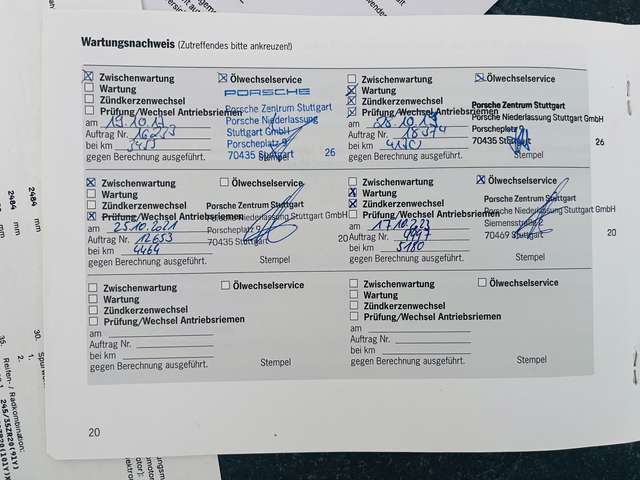 Wartungsnachweis (Zutreffendes bitte ankreuzen!)
Zwischenwartung
Ölwechselservice
Wartung
PORSCHE
Zündkerzenwechsel
Prüfung/Wechsel Antriebsriemen
Porsche Zentrum Stuttgart
am 19.10.17
Porsche Niederlassung
Auftrag Nr. 16253
Stuttgart GmbH
bei km
Porscheplatz 9
gegen Berechnung ausgeführt.
70435 Stuttgart
Stempel
26
Zwischenwartung
Ölwechselservice
Wartung
Zündkerzenwechsel
Porsche Zentrum Stuttgart
Prüfung/Wechsel Antriebsriemen
Porsche Niederlassung Stuttgart GmbH
am
Auftrag Nr. 18374
Porscheplatz
bei km
70435 Stuttgart
gegen Berechnung ausgeführt.
Stempel
26
Zwischenwartung
Ölwechselservice
Wartung
Zündkerzenwechsel
Porsche Zentrum Stuttgart
Prüfung/Wechsel Antriebsriemen
Porsche Niederlassung Stuttgart GmbH
am 25.10.2021
Porscheplatz 9
Auftrag Nr. 12653
70435 Stuttgart
20
bei km 4464
gegen Berechnung ausgeführt.
Stempel
Zwischenwartung
Ölwechselservice
Wartung
Zündkerzenwechsel
Porsche Zentrum Stuttgart
Prüfung/Wechsel Antriebsriemen
Porsche Niederlassung Stuttgart GmbH
am 17.10.23
Siemensstraße
Auftrag Nr.
70469 Stuttgart
20
bei km 5180
gegen Berechnung ausgeführt.
Stempel
Zwischenwartung
Ölwechselservice
Wartung
Zündkerzenwechsel
Prüfung/Wechsel Antriebsriemen
am
Auftrag Nr.
bei km
gegen Berechnung ausgeführt.
Stempel
Zwischenwartung
Ölwechselservice
Wartung
Zündkerzenwechsel
Prüfung/Wechsel Antriebsriemen
am
Auftrag Nr.
bei km
gegen Berechnung ausgeführt.
Stempel
20
2484 mm
2484 mm
30.
1.
2.
35.
Reifen- / Radkombination:
245/35ZR20(91Y)